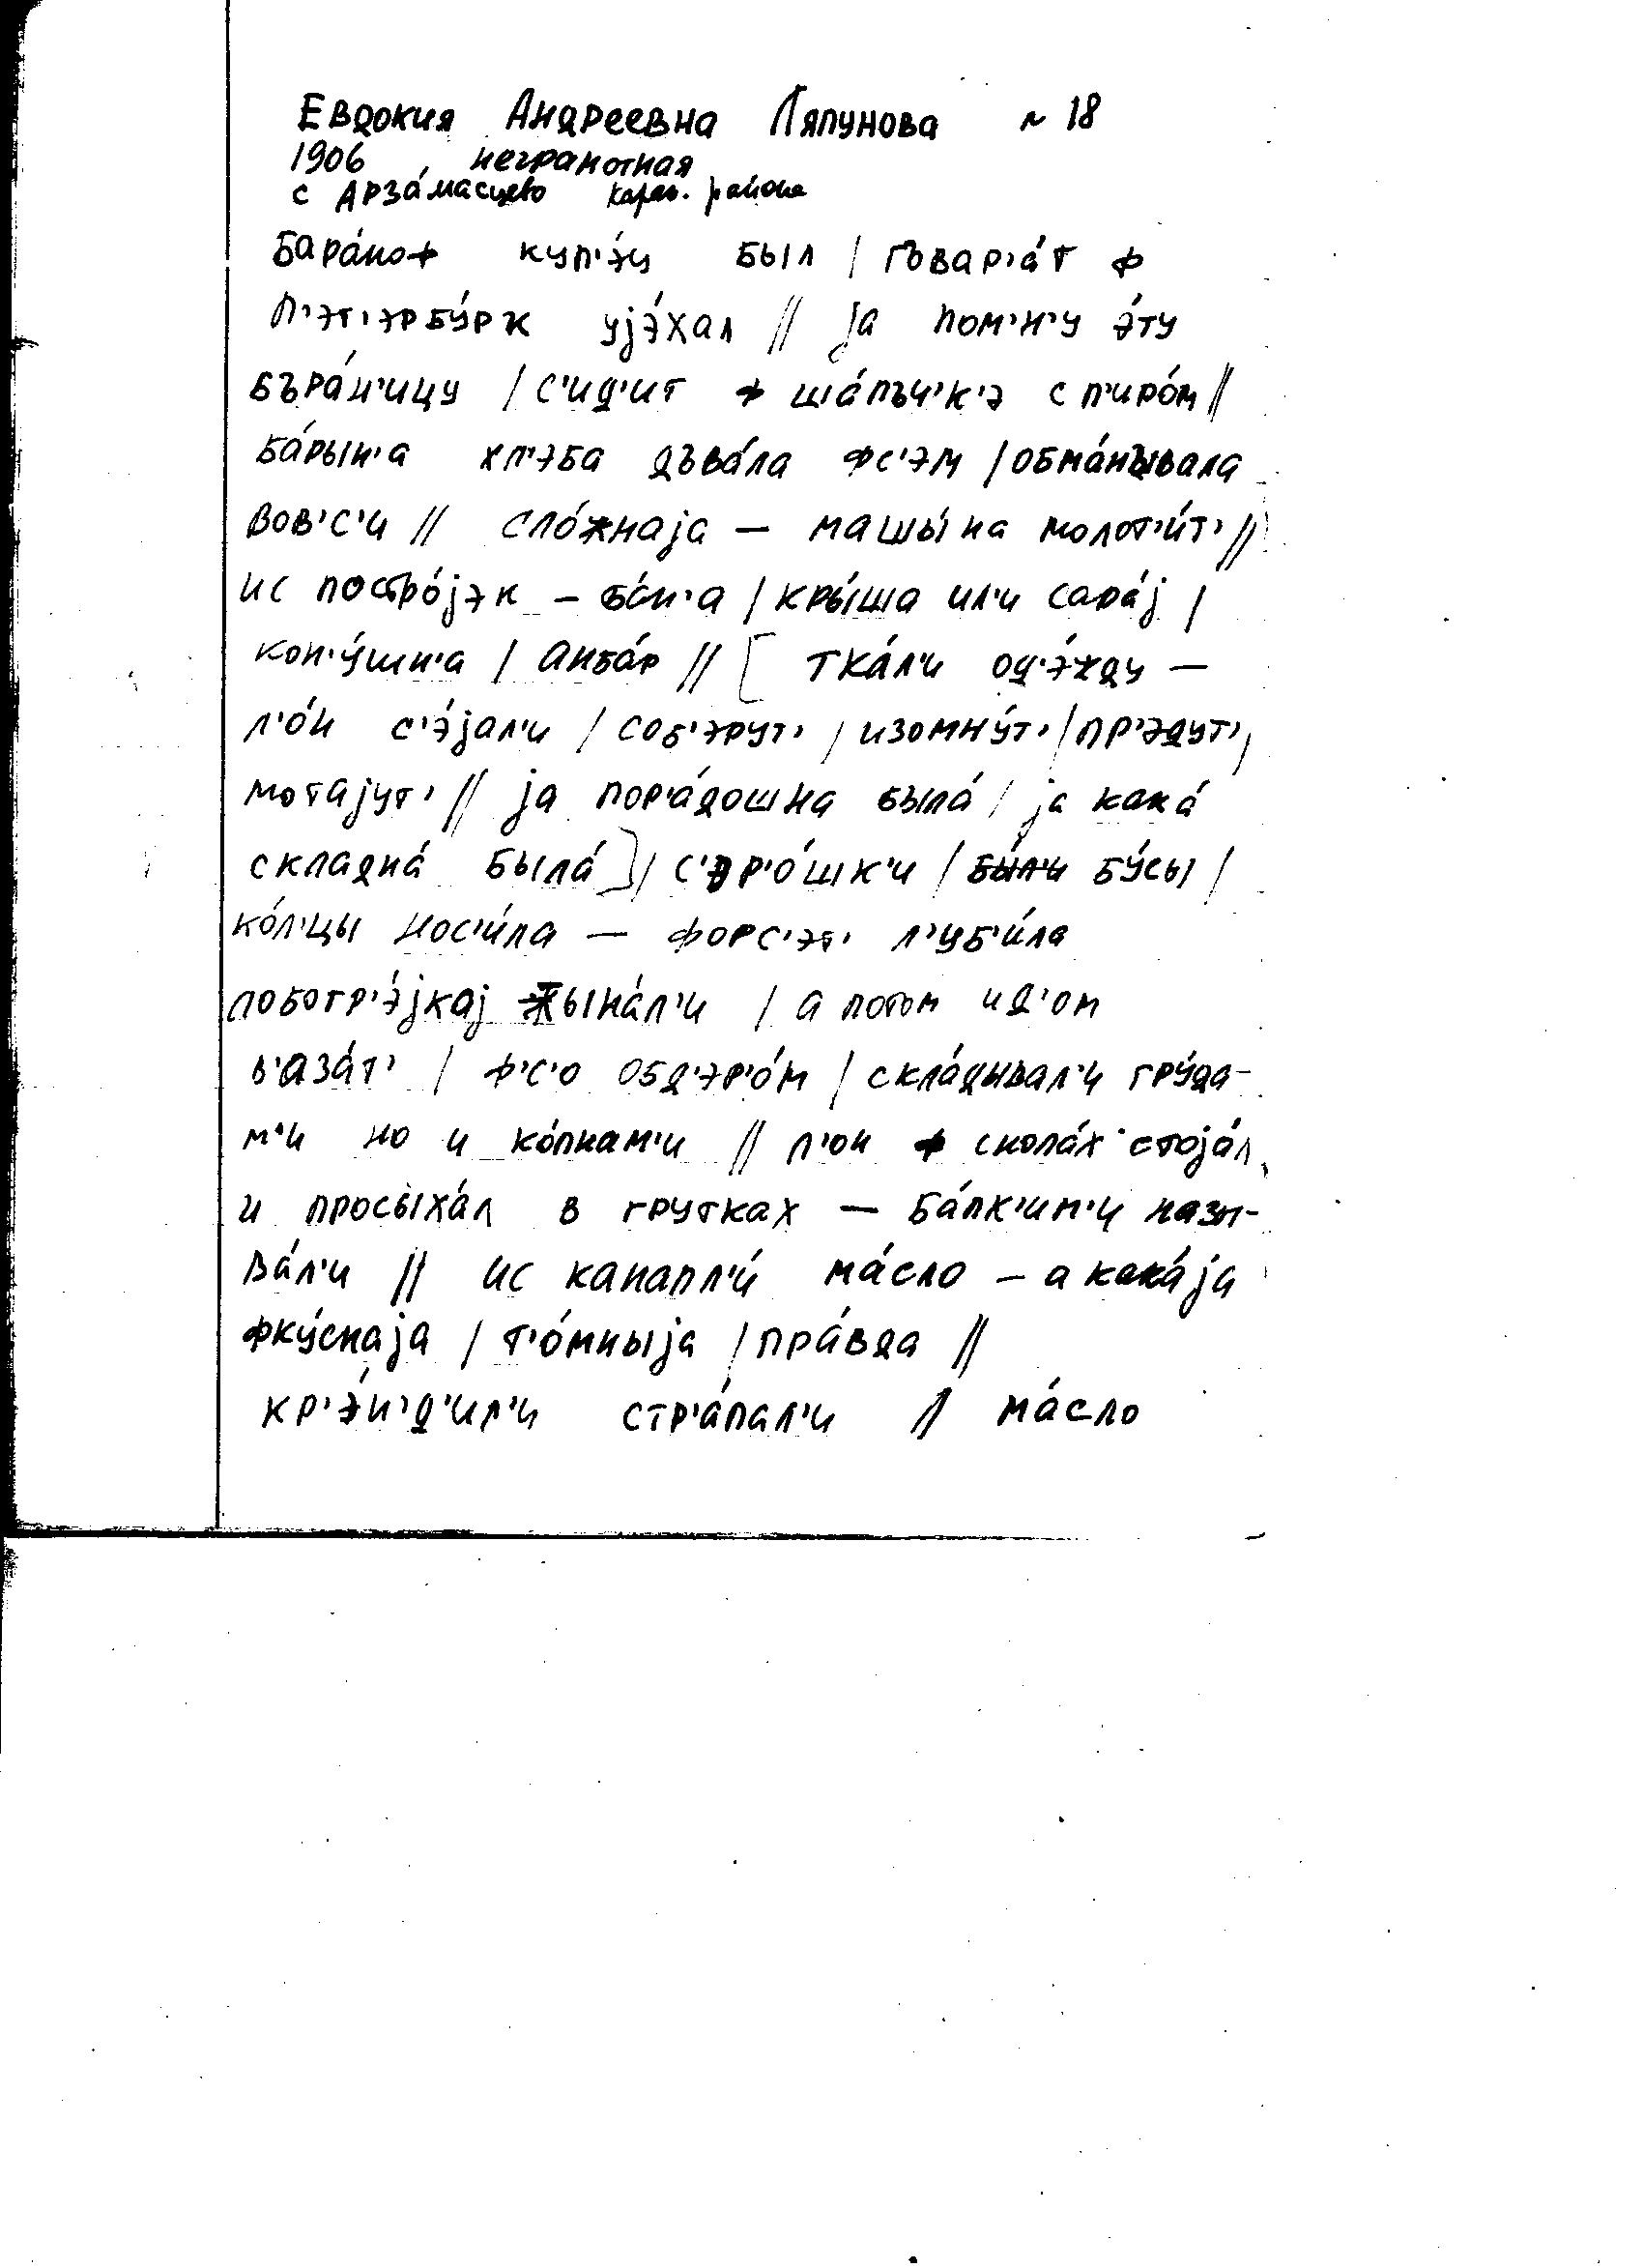 Евдокия Андреевна Ляпунова № 18
1906 неграмотная
с Арза́масцево района
Бара́ноф куп'э́ц был / гъвар'а́т ф
П'эт'эрбу́рк уjэ́хал // jа пом'н'у э́ту
Бъра́н'ицу / с'ид'ит ф ша́пъч'к'э с п'иро́м //
ба́рын'а хл'эба дъва́ла фс'эм / обма́нывала
вов'с'и // сло́жнаjа – машы́на молот'и́т' //
ис постро́jэк – ба́н'а / кры́ша ил'и сара́j /
кон'у́шн'а / анба́р // [ тка́л'и од'э́жду –
л'о́н с'э́jал'и / соб'эрут' / изомну́т' / пр'эдут' /
мотаjут' // jа пор'а́дошна была́ / jа кака́
складна́ была́ ] / с'эр'о́шк'и / бы́л'и бу́сы /
ко́л'цы нос'и́ла – форс'эт' л'уб'и́ла
лобогр'э́jкаj жына́л'и / а потом ид'ом
в'аза́т' / ф'с'о обд'эр'о́м / скла́дывал'и гру́да-
м'и но и ко́пнам'и // л'он ф снопа́х стоjа́л
и просыха́л в грутках – ба́пк'им'и назы-
ва́л'и // ис канапл'и́ ма́сло – а кака́jа
фку́снаjа / т'о́мныjа / пра́вда //
кр'э́н'д'ил'и стр'а́пал'и // ма́сло